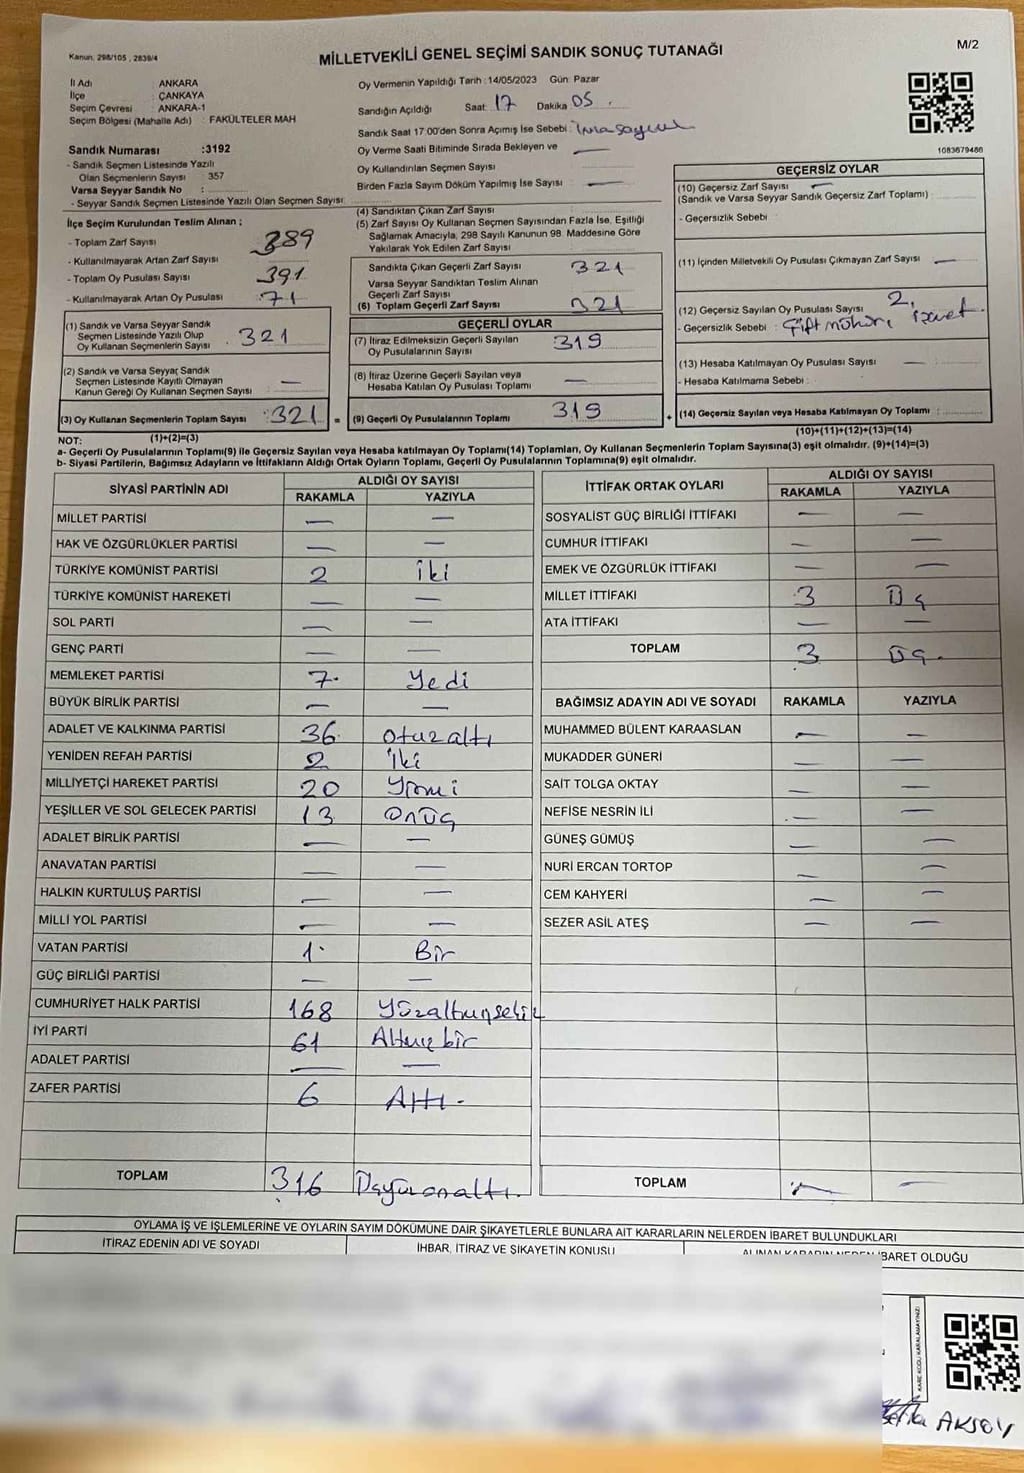 Kanun, 298/105 , 2839/4
MİLLETVEKİLİ GENEL SEÇİMİ SANDIK SONUÇ TUTANAĞI
M/2
İl Adı : ANKARA
İlçe : ÇANKAYA
Seçim Çevresi : ANKARA-1
Seçim Bölgesi (Mahalle Adı) : FAKÜLTELER MAH
Sandık Numarası :3192
- Sandık Seçmen Listesinde Yazılı
Olan Seçmenlerin Sayısı : 357
Varsa Seyyar Sandık No :
- Seyyar Sandık Seçmen Listesinde Yazılı Olan Seçmen Sayısı:
Oy Vermenin Yapıldığı Tarih :14/05/2023 Gün: Pazar
Sandığın Açıldığı Saat: 17 Dakika 05
Sandık Saat 17:00'den Sonra Açılmış İse Sebebi :
Oy Verme Saati Bitiminde Sırada Bekleyen ve —
Oy Kullandırılan Seçmen Sayısı
Birden Fazla Sayım Döküm Yapılmış İse Sayısı —
1083679486
İlçe Seçim Kurulundan Teslim Alınan ;
- Toplam Zarf Sayısı 389
- Kullanılmayarak Artan Zarf Sayısı
- Toplam Oy Pusulası Sayısı 391
- Kullanılmayarak Artan Oy Pusulası : 71
(1) Sandık ve Varsa Seyyar Sandık
Seçmen Listesinde Yazılı Olup
Oy Kullanan Seçmenlerin Sayısı 321
(2) Sandık ve Varsa Seyyar Sandık
Seçmen Listesinde Kayıtlı Olmayan
Kanun Gereği Oy Kullanan Seçmen Sayısı —
(3) Oy Kullanan Seçmenlerin Toplam Sayısı :321 =
(4) Sandıktan Çıkan Zarf Sayısı
(5) Zarf Sayısı Oy Kullanan Seçmen Sayısından Fazla İse, Eşitliği
Sağlamak Amacıyla, 298 Sayılı Kanunun 98. Maddesine Göre
Yakılarak Yok Edilen Zarf Sayısı
Sandıkta Çıkan Geçerli Zarf Sayısı 321
Varsa Seyyar Sandıktan Teslim Alınan
Geçerli Zarf Sayısı
(6) Toplam Geçerli Zarf Sayısı 321
GEÇERLİ OYLAR
(7) İtiraz Edilmeksizin Geçerli Sayılan
Oy Pusulalarının Sayısı 319
(8) İtiraz Üzerine Geçerli Sayılan veya
Hesaba Katılan Oy Pusulası Toplamı —
(9) Geçerli Oy Pusulalarının Toplamı 319 +
GEÇERSİZ OYLAR
(10) Geçersiz Zarf Sayısı —
(Sandık ve Varsa Seyyar Sandık Geçersiz Zarf Toplamı) :
- Geçersizlik Sebebi :
(11) İçinden Milletvekili Oy Pusulası Çıkmayan Zarf Sayısı —
(12) Geçersiz Sayılan Oy Pusulası Sayısı 2
- Geçersizlik Sebebi : Çift mühür, işaret.
(13) Hesaba Katılmayan Oy Pusulası Sayısı —
- Hesaba Katılmama Sebebi :
(14) Geçersiz Sayılan veya Hesaba Katılmayan Oy Toplamı :
NOT: (1)+(2)=(3)
(10)+(11)+(12)+(13)=(14)
a- Geçerli Oy Pusulalarının Toplamı(9) ile Geçersiz Sayılan veya Hesaba katılmayan Oy Toplamı(14) Toplamları, Oy Kullanan Seçmenlerin Toplam Sayısına(3) eşit olmalıdır. (9)+(14)=(3)
b- Siyasi Partilerin, Bağımsız Adayların ve İttifakların Aldığı Ortak Oyların Toplamı, Geçerli Oy Pusulalarının Toplamına(9) eşit olmalıdır.
SİYASİ PARTİNİN ADI ALDIĞI OY SAYISI
RAKAMLA YAZIYLA
MİLLET PARTİSİ — —
HAK VE ÖZGÜRLÜKLER PARTİSİ — —
TÜRKİYE KOMÜNİST PARTİSİ 2 iki
TÜRKİYE KOMÜNİST HAREKETİ — —
SOL PARTİ — —
GENÇ PARTİ — —
MEMLEKET PARTİSİ 7 Yedi
BÜYÜK BİRLİK PARTİSİ — —
ADALET VE KALKINMA PARTİSİ 36 otuzaltı
YENİDEN REFAH PARTİSİ 2 iki
MİLLİYETÇİ HAREKET PARTİSİ 20 Yirmi
YEŞİLLER VE SOL GELECEK PARTİSİ 13 onüç
ADALET BİRLİK PARTİSİ — —
ANAVATAN PARTİSİ — —
HALKIN KURTULUŞ PARTİSİ — —
MİLLİ YOL PARTİSİ — —
VATAN PARTİSİ 1 Bir
GÜÇ BİRLİĞİ PARTİSİ — —
CUMHURİYET HALK PARTİSİ 168 Yüzaltmışsekiz
İYİ PARTİ 61 Altmışbir
ADALET PARTİSİ — —
ZAFER PARTİSİ 6 Altı
TOPLAM 316 Üçyüzonaltı
İTTİFAK ORTAK OYLARI ALDIĞI OY SAYISI
RAKAMLA YAZIYLA
SOSYALİST GÜÇ BİRLİĞİ İTTİFAKI — —
CUMHUR İTTİFAKI — —
EMEK VE ÖZGÜRLÜK İTTİFAKI — —
MİLLET İTTİFAKI 3 Üç
ATA İTTİFAKI — —
TOPLAM 3 Üç
BAĞIMSIZ ADAYIN ADI VE SOYADI RAKAMLA YAZIYLA
MUHAMMED BÜLENT KARAASLAN — —
MUKADDER GÜNERİ — —
SAİT TOLGA OKTAY — —
NEFİSE NESRİN İLİ — —
GÜNEŞ GÜMÜŞ — —
NURİ ERCAN TORTOP — —
CEM KAHYERİ — —
SEZER ASİL ATEŞ — —
TOPLAM — —
OYLAMA İŞ VE İŞLEMLERİNE VE OYLARIN SAYIM DÖKÜMÜNE DAİR ŞİKAYETLERLE BUNLARA AİT KARARLARIN NELERDEN İBARET BULUNDUKLARI
İTİRAZ EDENİN ADI VE SOYADI İHBAR, İTİRAZ VE ŞİKAYETİN KONUSU ALINAN KARARIN NEDEN İBARET OLDUĞU
KARE KODU KARALAMAYINIZ!
AKSOY